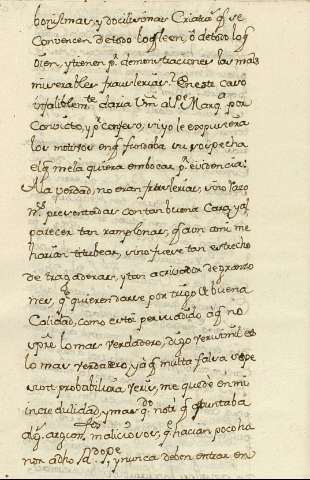 bonissimas, y docilissimas Criatas q.e se
Convencen de todo lo q.e leen, ò de todo lo q.e
oien, y tienen p.r demonstraciones las mas
miserables fruslerias? En este caso
infaliblem.te daria Vm al S.r Marq.s por
Convicto, y p.r confeso, si yo le expusiera
los motivos en q.e fundaba su sospecha
el q.e me la quiera embocar p.r evidencia.
A la verdad, no eran fruslerias, sino razo
n.s presentadas con tan buena cara, y al
parecer tan ramplonas, q.e aun ami me
hacian titubear, sino fuese tan estrecho
de tragaderas, y tan acrivador de grano
nes, q.e quieren darse por trigo de buena
Calidad, como estoi persuadido à q.e no
spre lo mas verdadero, digo verisimil es
lo mas verdadero, yà q.e multa falsa spe
probabiliora veris, me quedè en mi
incredulidad, y mas q.do notè q.e apuntaba
alg.s argum.tos maliciosos, q.e hacian poco ha
nor a dho y nunca deben entrar en